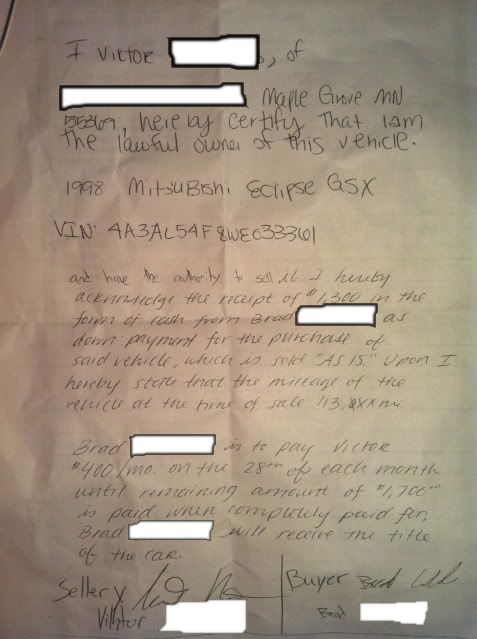 I Viktor , of
Maple Grove MN
55369, hereby certify that I am
the lawful owner of this vehicle.
1998 Mitsubishi Eclipse GSX
VIN: 4A3AL54F8WE033361
and have the authority to sell it. I hereby
acknowledge the receipt of $1,300 in the
form of cash from Brad as
down payment for the purchase of
said vehicle, which is sold "AS IS." Upon I
hereby state that the mileage of the
vehicle at the time of sale 113,8XX mi
Brad is to pay Victor
$400/mo. on the 28th of each month
until remaining amount of $1,700.00
is paid. when completely paid for,
Brad will receive the title
of the car.
Seller X
Viktor
Buyer Brad
Brad